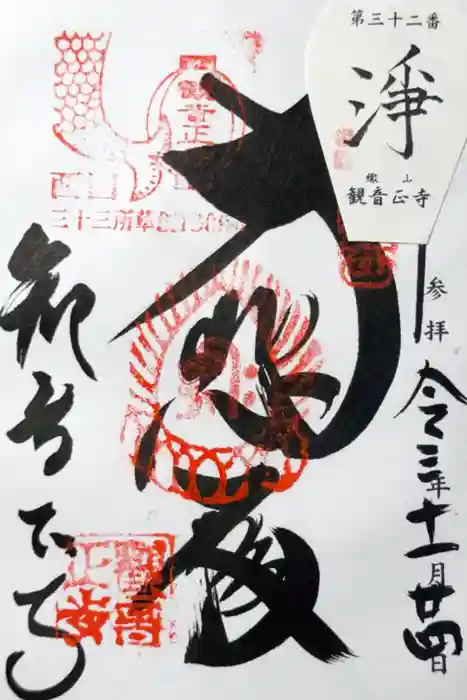 第三十二番
淨
繖山
観音正寺
参拝
令三年十一月廿四日
大悲殿
観音正寺
観音正寺
西国
三十三所草創1300
観音正寺